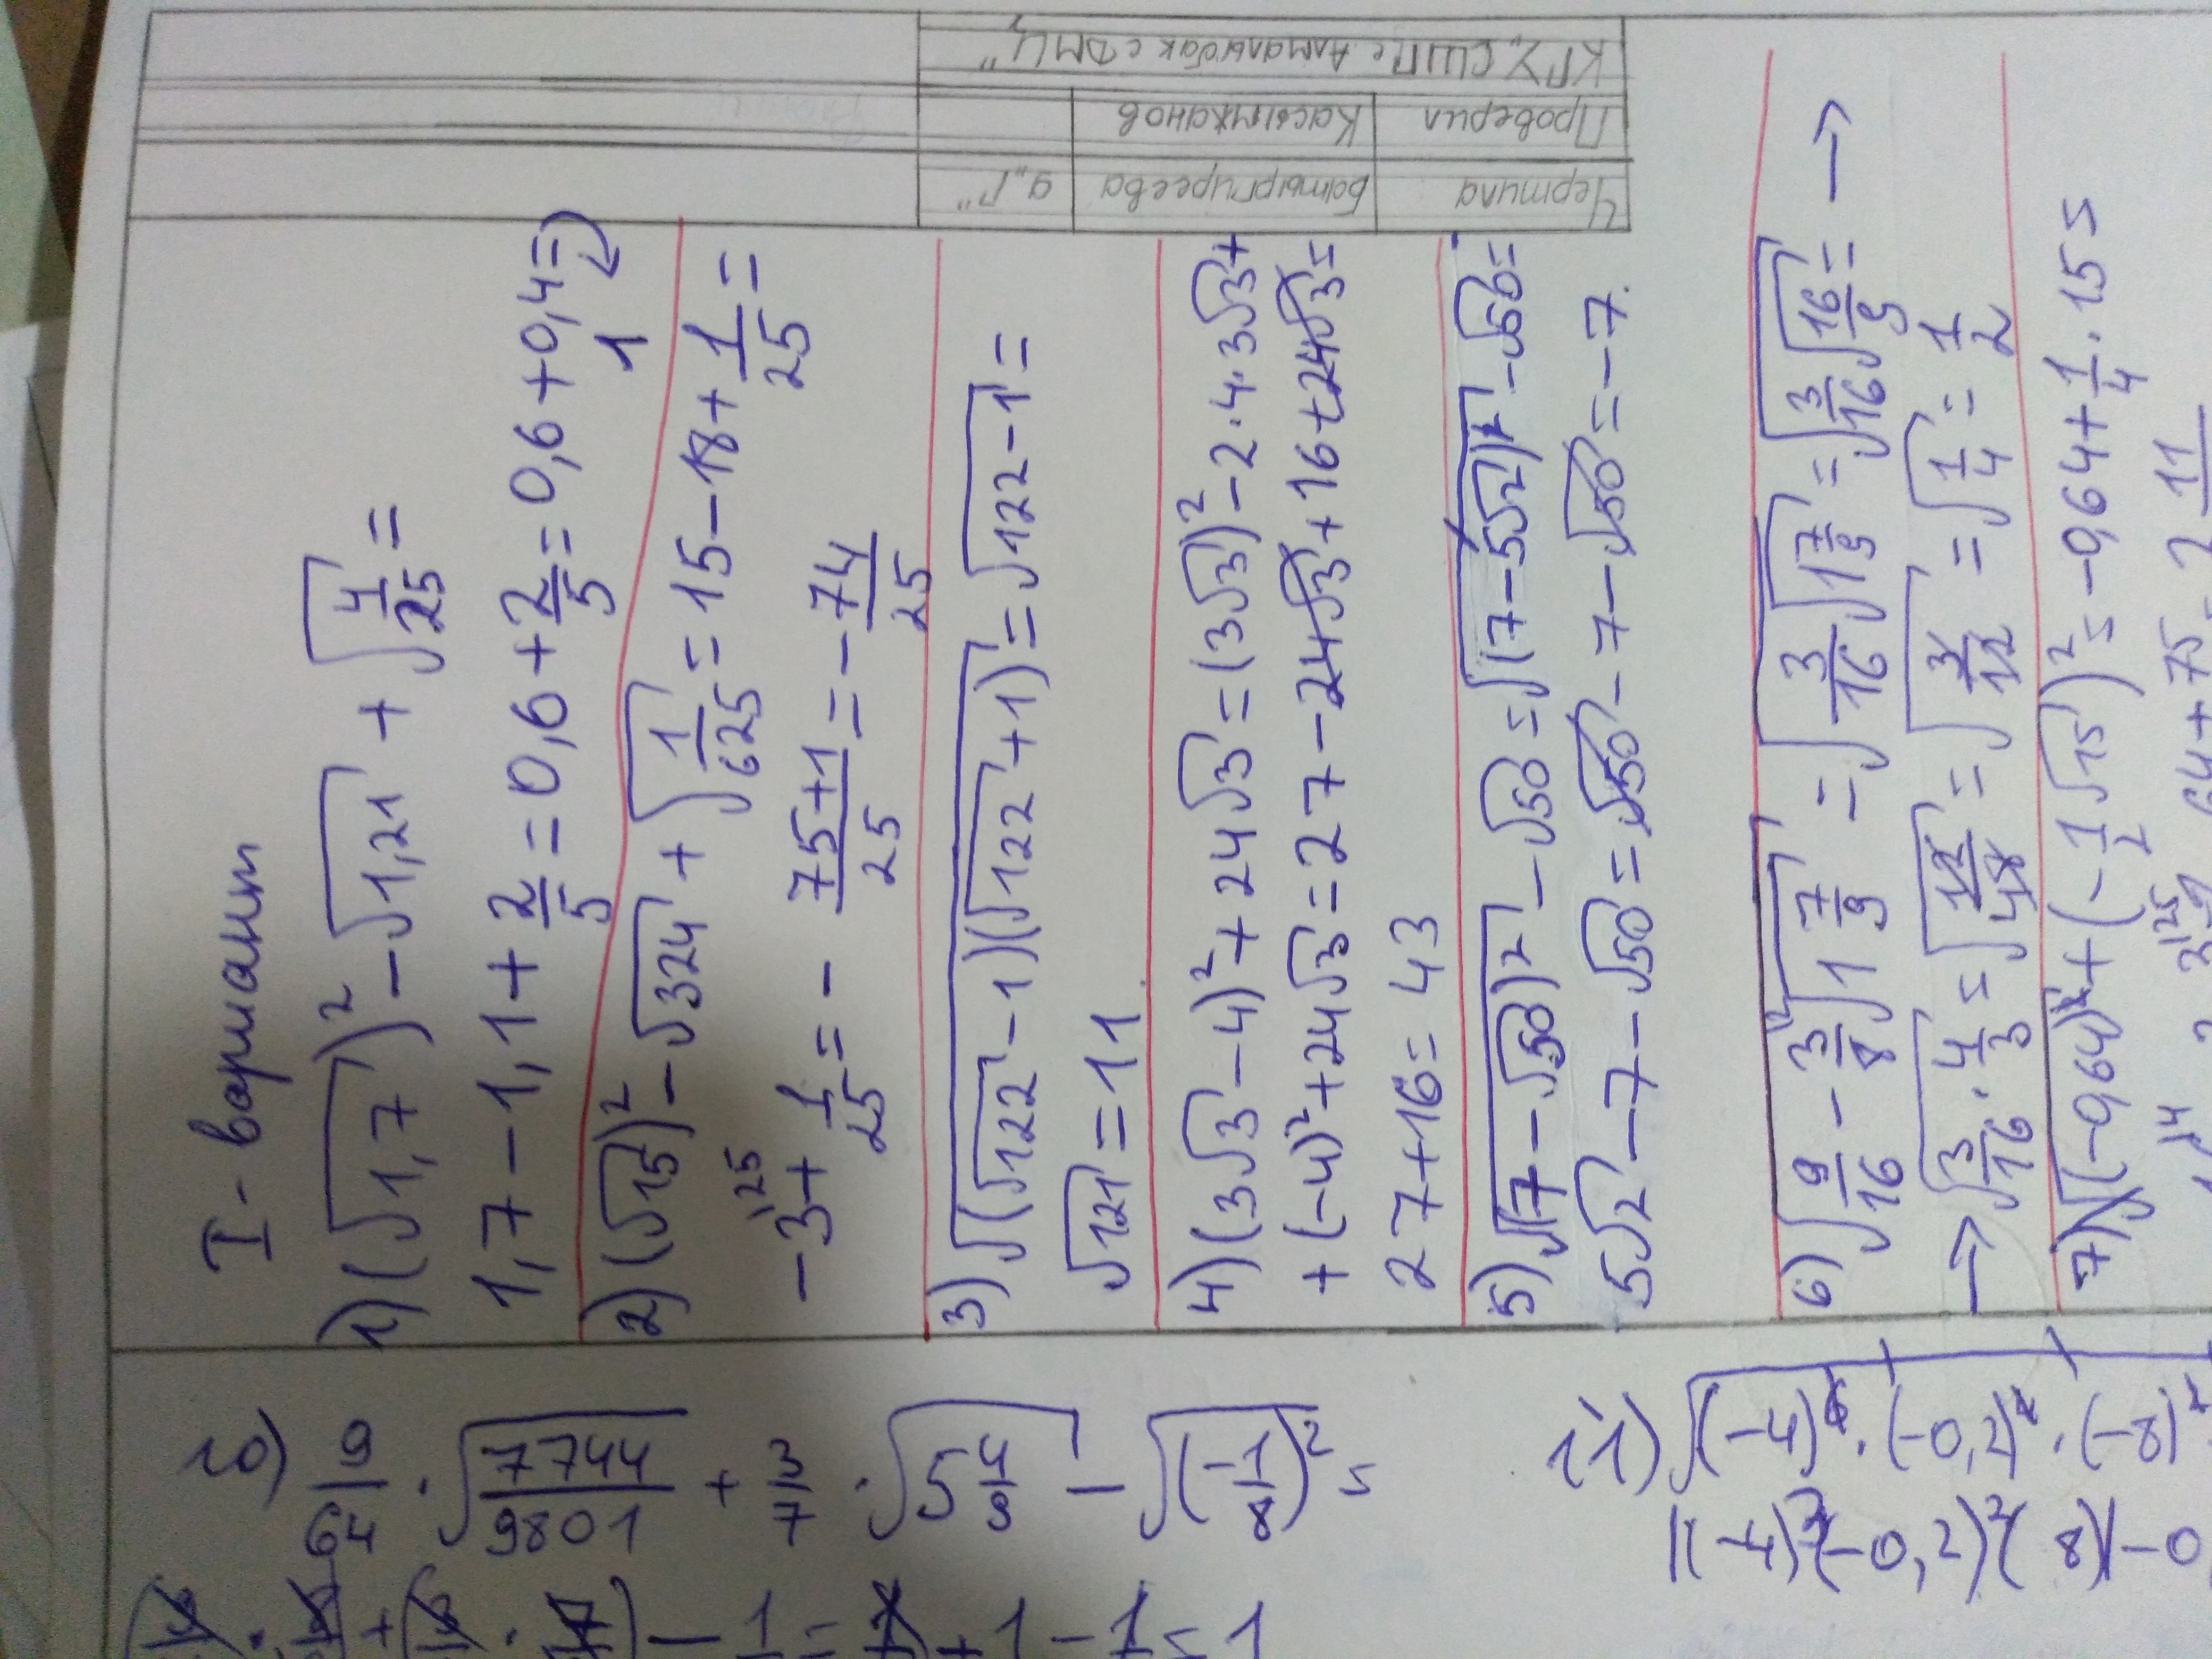 I - вариант
1) (√1,7)² - √1,21 + √4/25 =
1,7 - 1,1 + 2/5 = 0,6 + 2/5 = 0,6 + 0,4 =
1
2) (√15)² - √324 + √1/625 = 15 - 18 + 1/25 =
-3 + 1/25 = - 75+1/25 = - 74/25
3) √(√122 - 1)(√122 + 1) = √122 - 1 =
√121 = 11
4) (3√3 - 4)² + 24√3 = (3√3)² - 2 · 4 · 3√3 +
+ (-4)² + 24√3 = 27 - 24√3 + 16 + 24√3 =
27 + 16 = 43
5) √(7 - √50)² - √50 = √(7 - 5√2)² - √50 =
5√2 - 7 - √50 = √50 - 7 - √50 = -7.
6) √9/16 - 3/8 √1 7/9 = √3/16 √1 7/9 = √3/16 √16/9 = →
→ √3/16 · 4/3 = √12/48 = √3/12 = √1/4 = 1/2
7) √(-964)² + (-1/2 √15)² = -964 + 1/4 · 15 =
10) 9/64 · √7744/9801 + 3/7 · √5 4/9 - √(-1/8)² =
11) √(-4)⁶ · (-0,2)⁴ · (-8)²
Чертила Батыргиреева 9 "Г"
Проверил Касымжанов